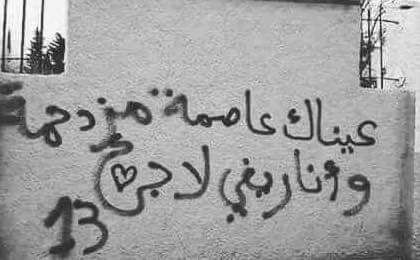 عيناك عاصمة مزدحمة
وأنا ريفي لاجئ
13